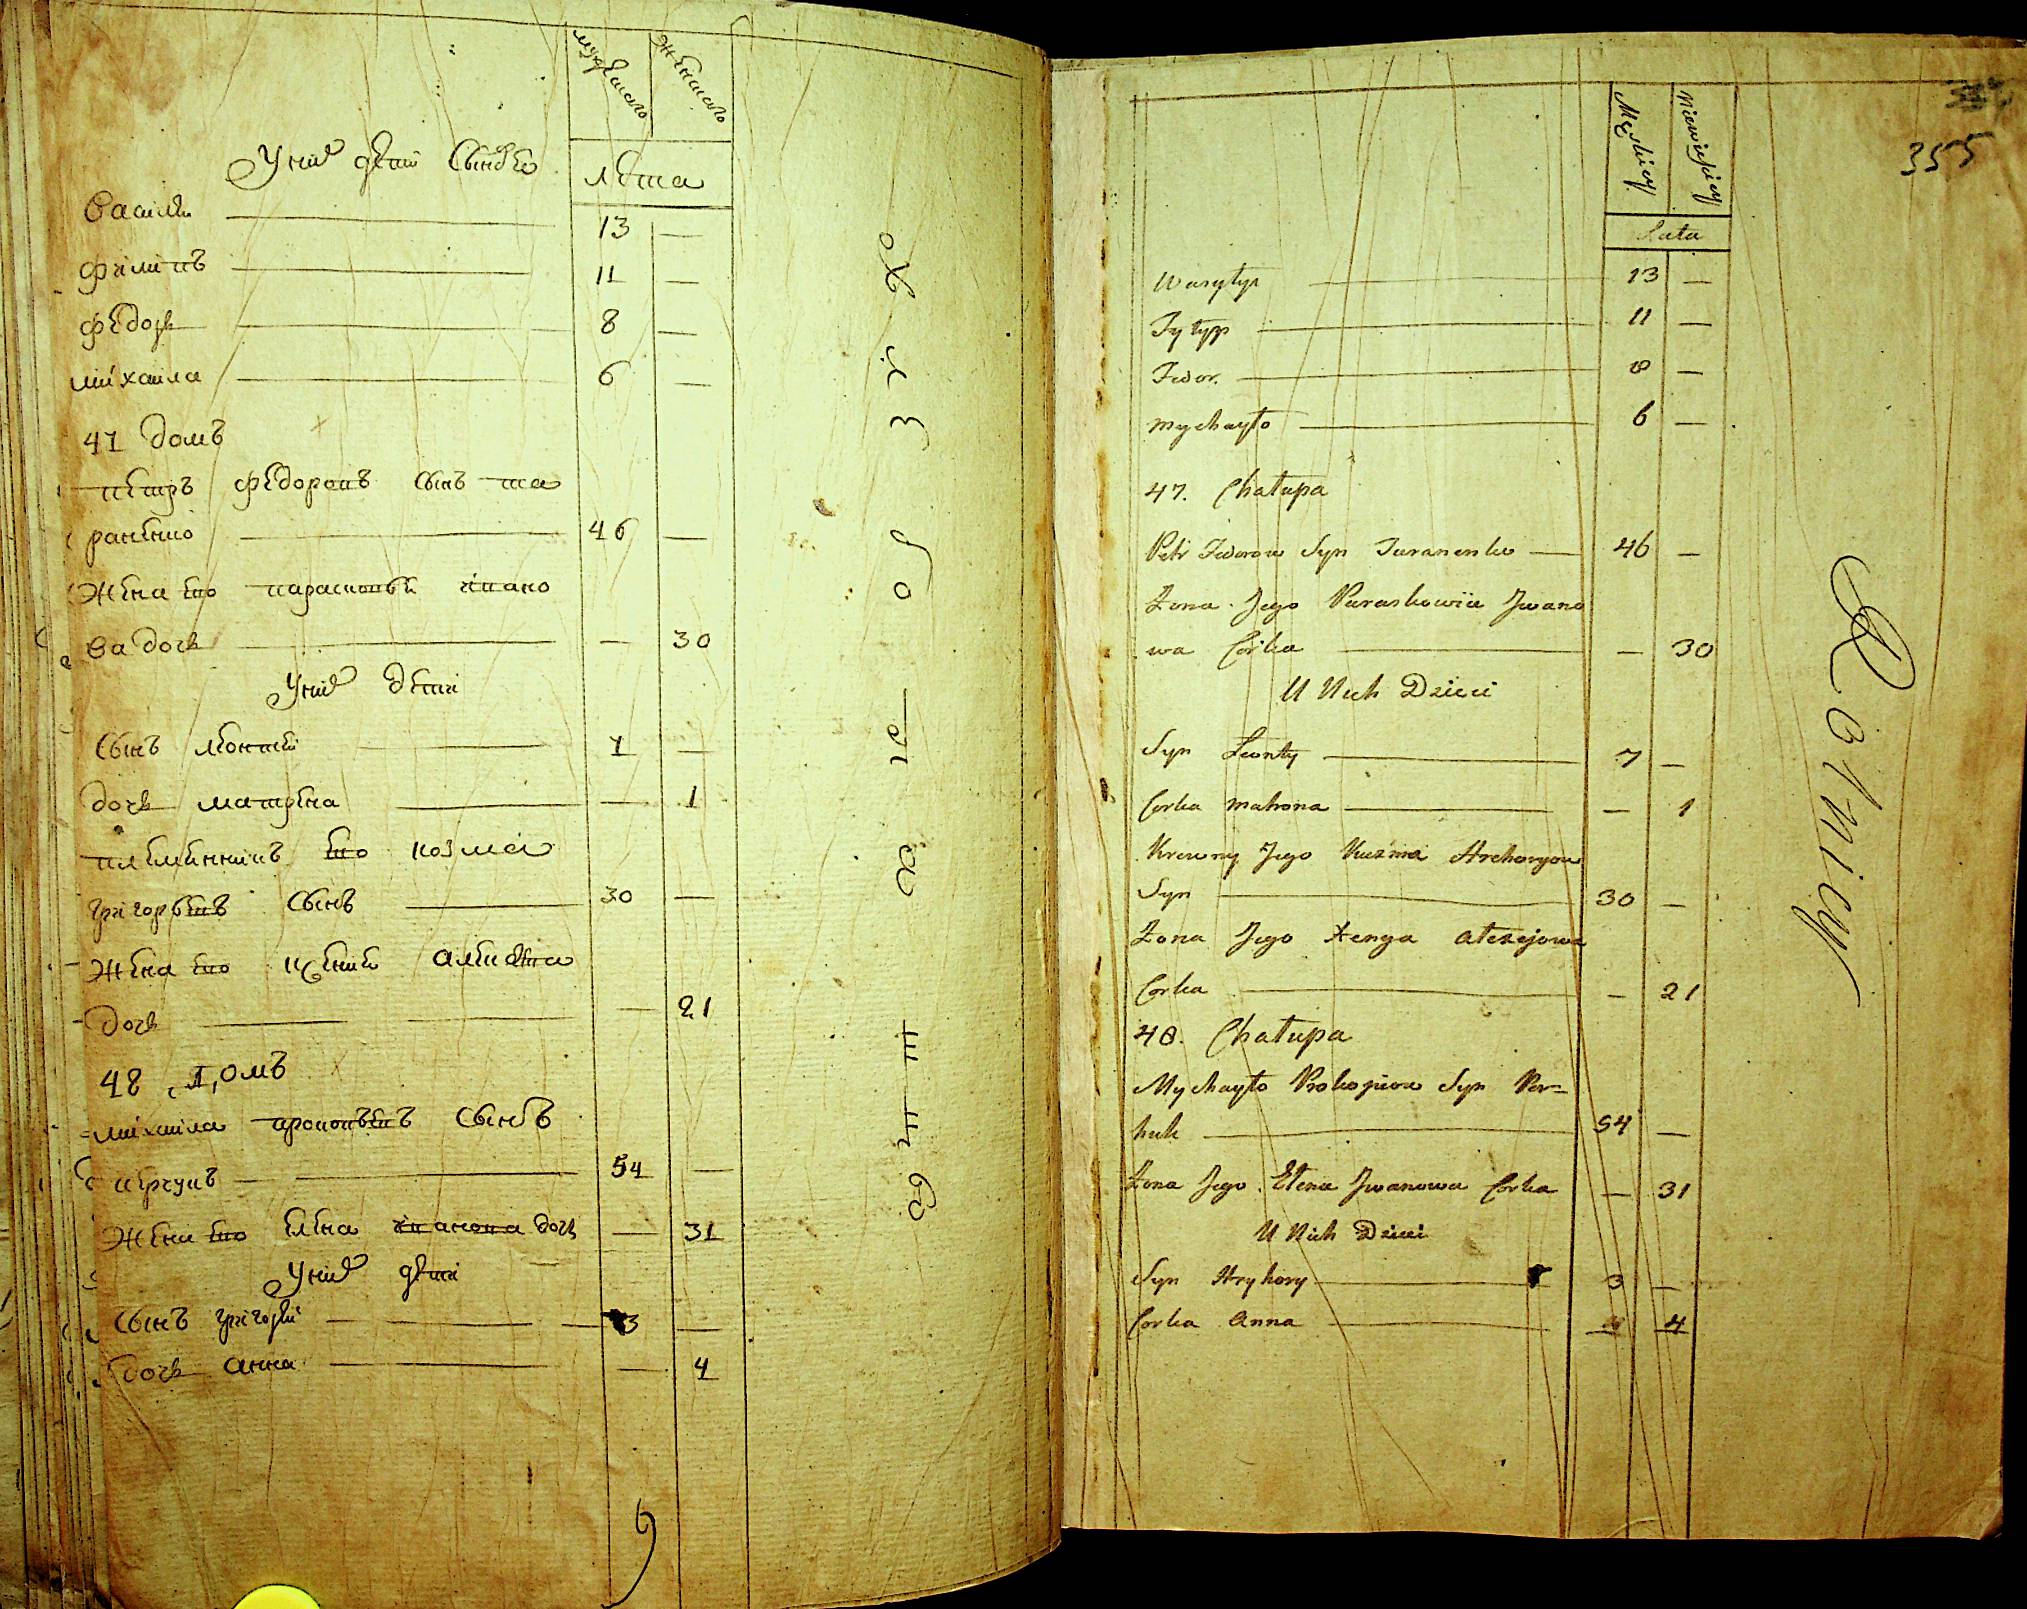 мужеска
женска
У них дети Сынове
лѣта
Василь 13 —
Филипъ 11 —
Федоръ 8 —
михаила 6 —
47 домъ
петръ Федоровъ сынъ та
раненко 46 —
Жена его парасковѣя ивано
ва дочь — 30
У них дети
Сынъ леонтей 7 —
дочь матрена — 1
племенникъ его козма
григорѣевъ сынъ 30 —
Жена его ксения алексѣева
дочь — 21
48 домъ
михаила прокопѣевъ сынъ
54 —
Жена его елена иванова дочь — 31
У них дети
Сынъ григорѣй 3 —
дочь анна — 4
355
Męskiey
Niewieskiey
Lata
Wasylyi 13 —
Fylypp 11 —
Fedor. 8 —
Mychayło 6 —
47. Chałupa
Petr Fedorow Syn Taranenko — 46 —
Żona Jego Paraskowiia Jwano
wa Córka — 30
U Nich Dzieci
Syn Leonty 7 —
Corka Matrona — 1
Krewny Jego Kuzma Hrehoryow
Syn 30 —
Żona Jego Xenya Alexejowa
Corka — 21
48. Chałupa
Mychayło Prokopiow Syn Per=
huk 54 —
Żona Jego Elena Jwanowa Corka — 31
U Nich Dzieci
Syn Hryhory 3 —
Corka Anna — 4
Rolnicy